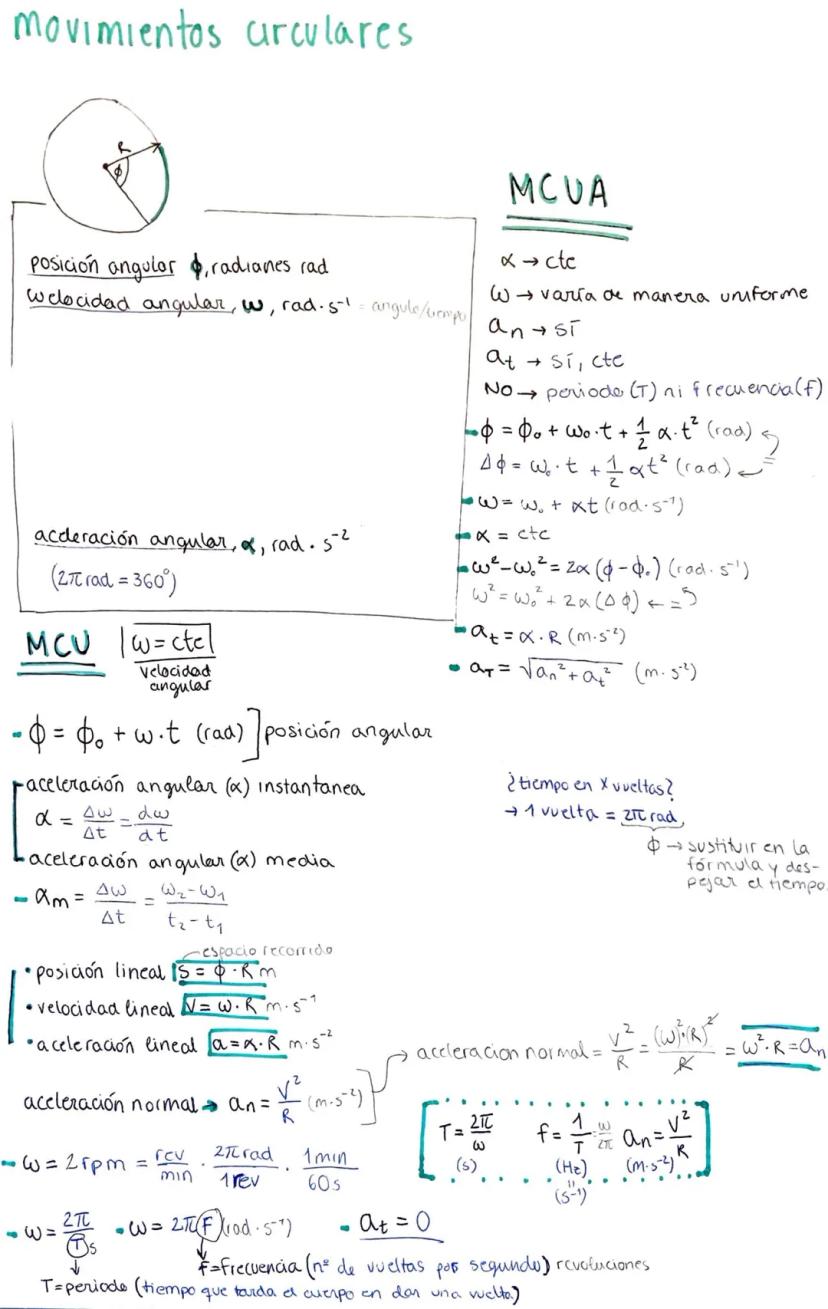 movimientos circulares
R
ϕ
posición angular ϕ, radianes rad
welocidad angular, ω, rad·s⁻¹ = angulo/tiempo
aceleración angular, α, rad·s⁻²
(2π rad = 360°)
MCUA
α → ctc
ω → varía de manera uniforme
an → sí
at → sí, ctc
NO → periodo (T) ni frecuencia (f)
- ϕ = ϕ₀ + ω₀·t + 1/2 α·t² (rad)
Δϕ = ω₀·t + 1/2 αt² (rad) ← =
- ω = ω₀ + αt (rad·s⁻¹)
- α = ctc
- ω² - ω₀² = 2α (ϕ - ϕ₀) (rad·s⁻¹)
ω² = ω₀² + 2α (Δϕ) ← =
- at = α·R (m·s⁻²)
- aT = √(an² + at²) (m·s⁻²)
MCU |ω = ctc|
velocidad
angular
- ϕ = ϕ₀ + ω·t (rad)] posición angular
aceleración angular (α) instantanea
α = Δω/Δt = dω/dt
aceleración angular (α) media
- αm = Δω/Δt = ω₂-ω₁/t₂-t₁
¿tiempo en x vueltas?
→ 1 vuelta = 2π rad
ϕ → sustituir en la
fórmula y des-
pejar el tiempo.
espacio recorrido
• posición lineal |S = ϕ·R m
• velocidad lineal V = ω·R m·s⁻¹
• aceleración lineal a = α·R m·s⁻²
aceleración normal → an = V²/R (m·s⁻²)
aceleracion normal = V²/R = (ω)²·(R)²/R = ω²·R = an
T = 2π/ω f = 1/T = ω/2π an = V²/R
(s) (Hz) (m·s⁻²)
=
(s⁻¹)
- ω = 2rpm = rev/min · 2π rad/1rev · 1min/60s
- ω = 2π/T s - ω = 2πF (rad·s⁻¹) - at = 0
f=frecuencia (nº de vueltas por segundo) revoluciones
T=periodo (tiempo que tarda el cuerpo en dar una vuelta)